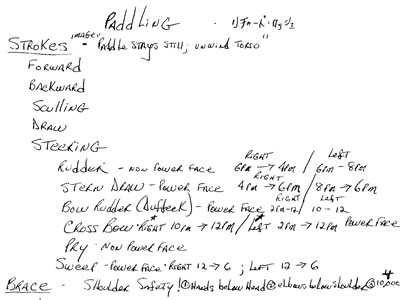 PADDLING
STROKES - "IMAGE" "PADDLE STAYS STILL; UNWIND TORSO"
FORWARD
BACKWARD
SCULLING
DRAW
STEERING
RUDDER - NON POWER FACE RIGHT 6PM → 4PM / LEFT 6PM - 8PM
STERN DRAW - POWER FACE RIGHT 4PM → 6PM / 8PM → 6PM
BOW RUDDER (Duffeck) - POWER FACE RIGHT 2PM-12 / LEFT 10 - 12
CROSS BOW * RIGHT 10PM → 12PM / * LEFT 2PM → 12PM POWER FACE
PRY - NON POWER FACE
SWEEP - POWER FACE * RIGHT 12 → 6 ; LEFT 12 → 6
BRACE - SHOULDER SAFETY! ① Hands below Head ② elbows below shoulder ③